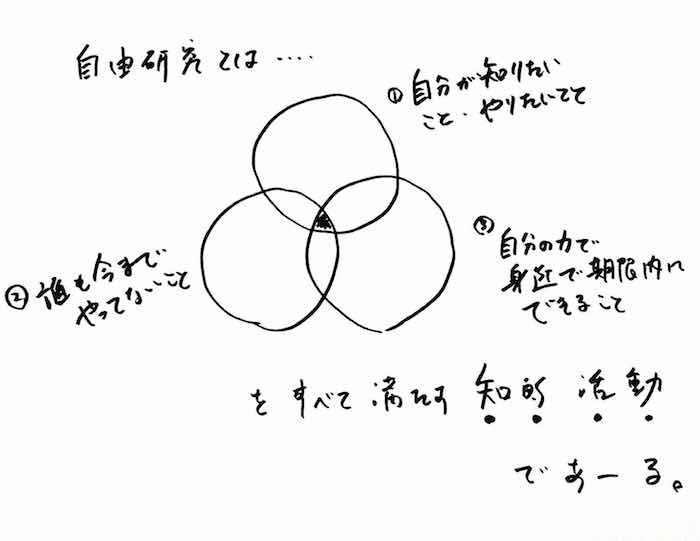 自由研究とは‥‥
①自分が知りたい
こと・やりたいこと
②誰も今まで
やってないこと
③自分の力で
身近で期限内に
できること
をすべて満たす知的活動
であーる。